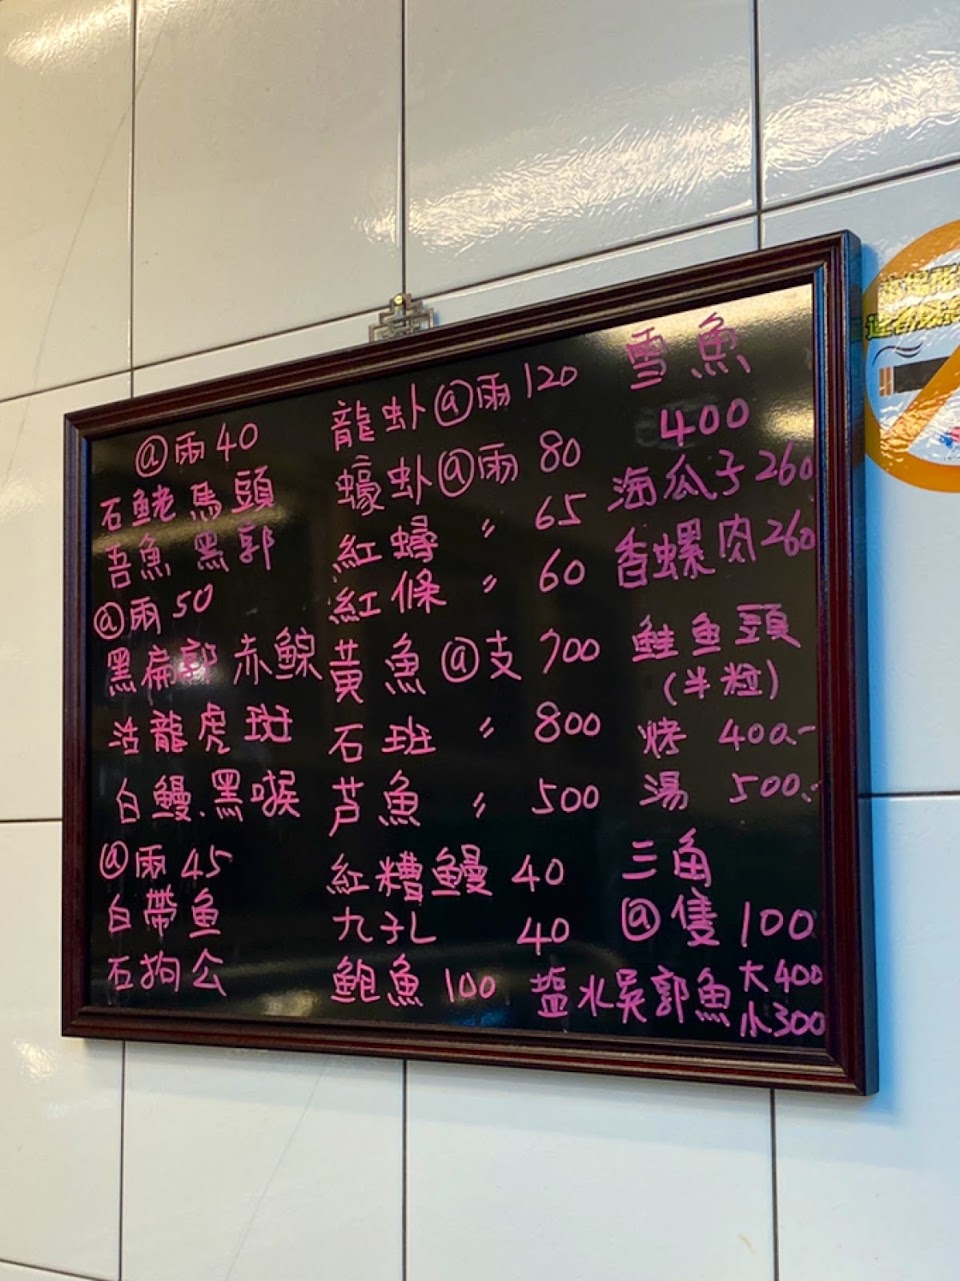 @両40
石鮱 馬頭
吾魚 黑郭
@両50
黑扁郭 赤鯮
活龍虎斑
白鰻.黑喉
@両 45
白帶魚
石狗公
龍虾@両120
蠔虾@両 80
紅蟳 〃 65
紅條 〃 60
黃魚@支 700
石班 〃 800
芦魚 〃 500
紅糟鰻 40
九孔 40
鮑魚 100
雪魚
400
海瓜子260
香螺肉260
鮭魚頭
(半粒)
烤 400.-
湯 500.-
三角
@隻 100
盐水吳郭魚 大400
小300